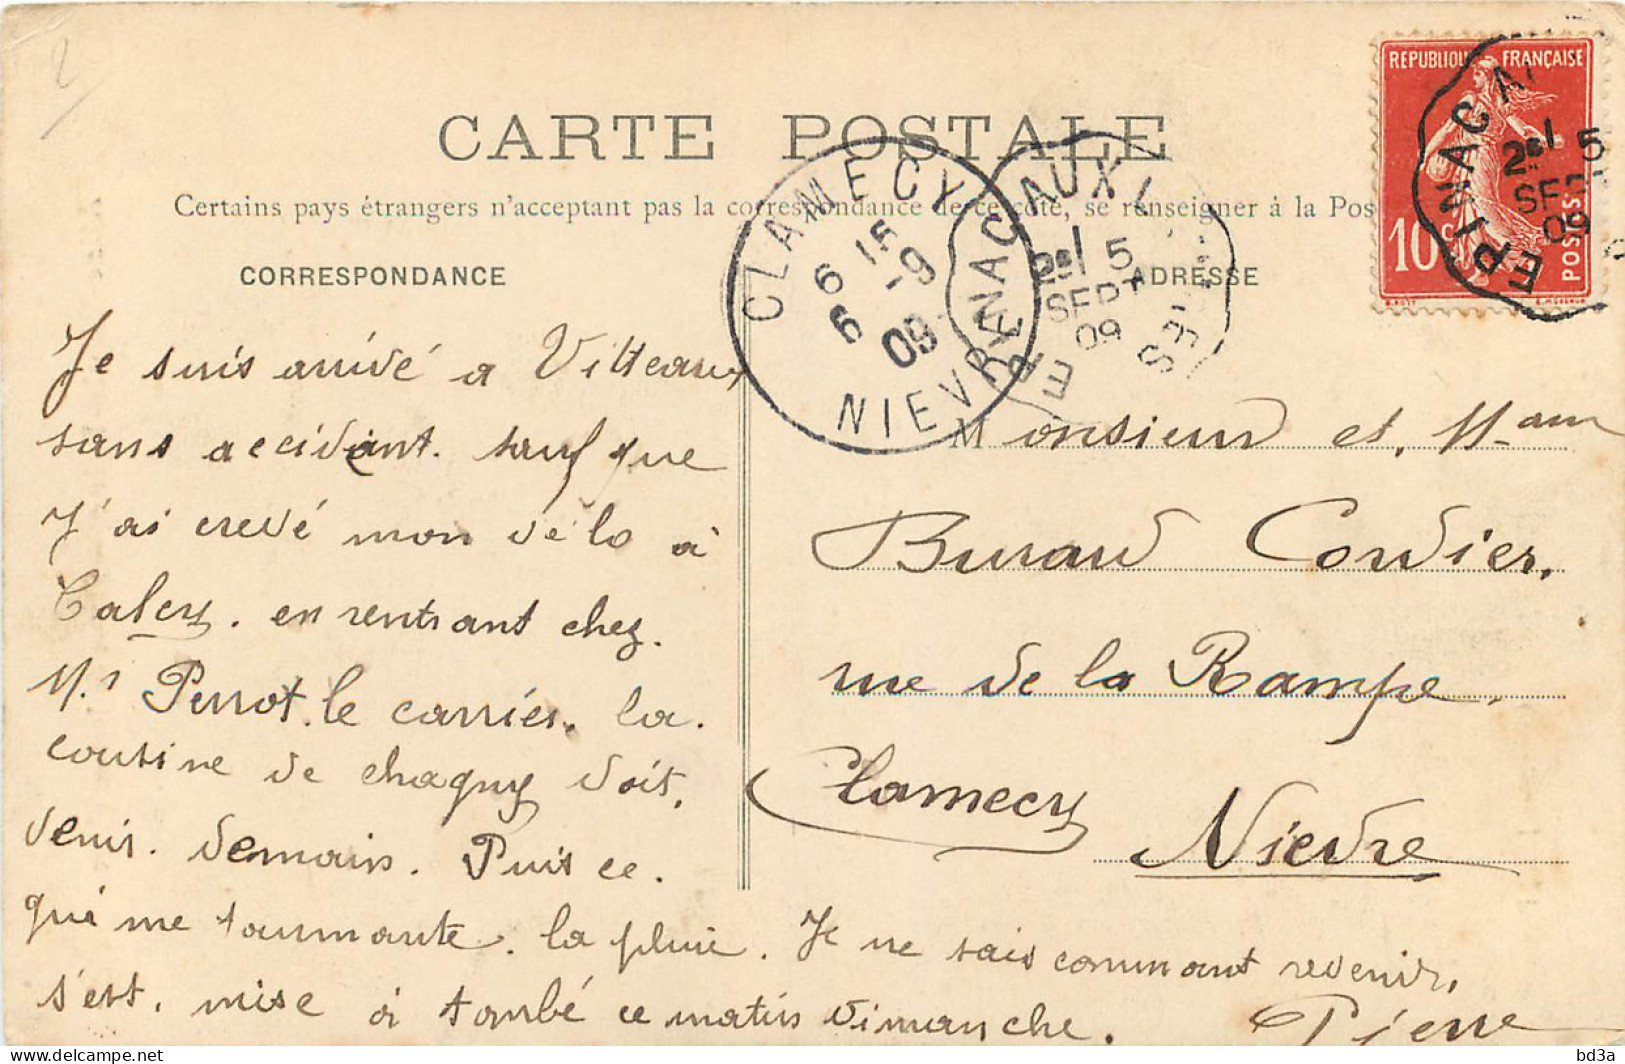 2
CARTE POSTALE
Certains pays étrangers n'acceptent pas la correspondance de ce côté, se renseigner à la Pos
CORRESPONDANCE
ADRESSE
REPUBLIQUE FRANÇAISE
10 c
POSTES
EPINAC
2e 5
SEPT
09
CLAMECY
6 15
6 -9
09
NIEVRE
EPINAC AUX
2e 5
SEPT
09
Je suis arrivé a Vitteaux
sans accidant. sauf que
J'ai crevé mon vélo à
en rentrant chez.
Mr Perrot. le carrier. la.
cousine de chagny doit.
venir. demain. Puis ce.
qui me tourmante. la pluie. Je ne sais commant revenir,
s'est. mise à tombé ce matin dimanche.
Pierre
Monsieur et, Mam
Burard Cordier,
rue de la Rampe.
Clamecy
Nievre
bd3a